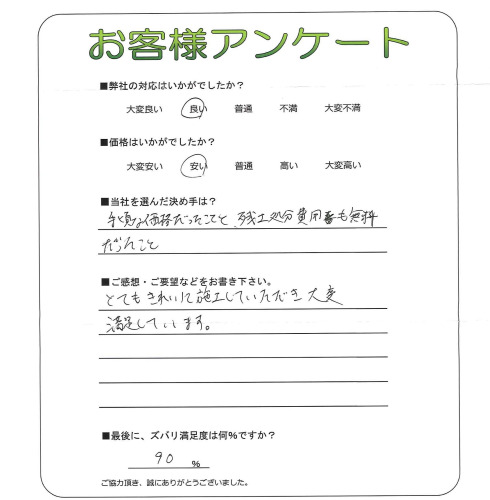 お客様アンケート
■弊社の対応はいかがでしたか？
大変良い 良い 普通 不満 大変不満
■価格はいかがでしたか？
大変安い 安い 普通 高い 大変高い
■当社を選んだ決め手は？
手頃な価格だったことと、残土処分費用も無料
だったこと
■ご感想・ご要望などをお書き下さい。
とてもきれいに施工していただき大変
満足しています。
■最後に、ズバリ満足度は何%ですか？
90 %
ご協力頂き、誠にありがとうございました。